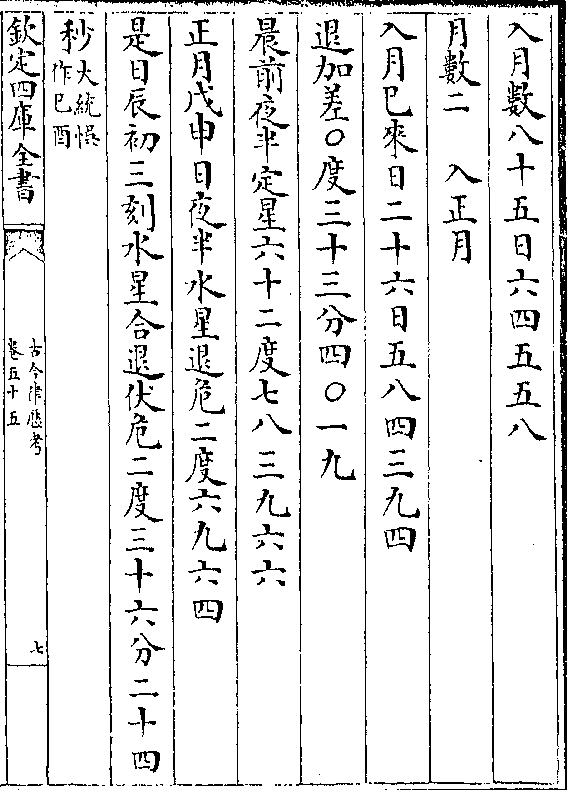 入月數八十五日六四五五八
月數二　入正月
入月已來日二十六日五八四三九四
退加差〇度三十三分四〇一九
晨前夜半定星六十二度七八三九六六
正月戊申日夜半水星退危二度六九六四
是日辰初三刻水星合退伏危二度三十六分二十四
秒大統悮作己酉
欽定四庫全書
古今律歷考
卷五十五
七